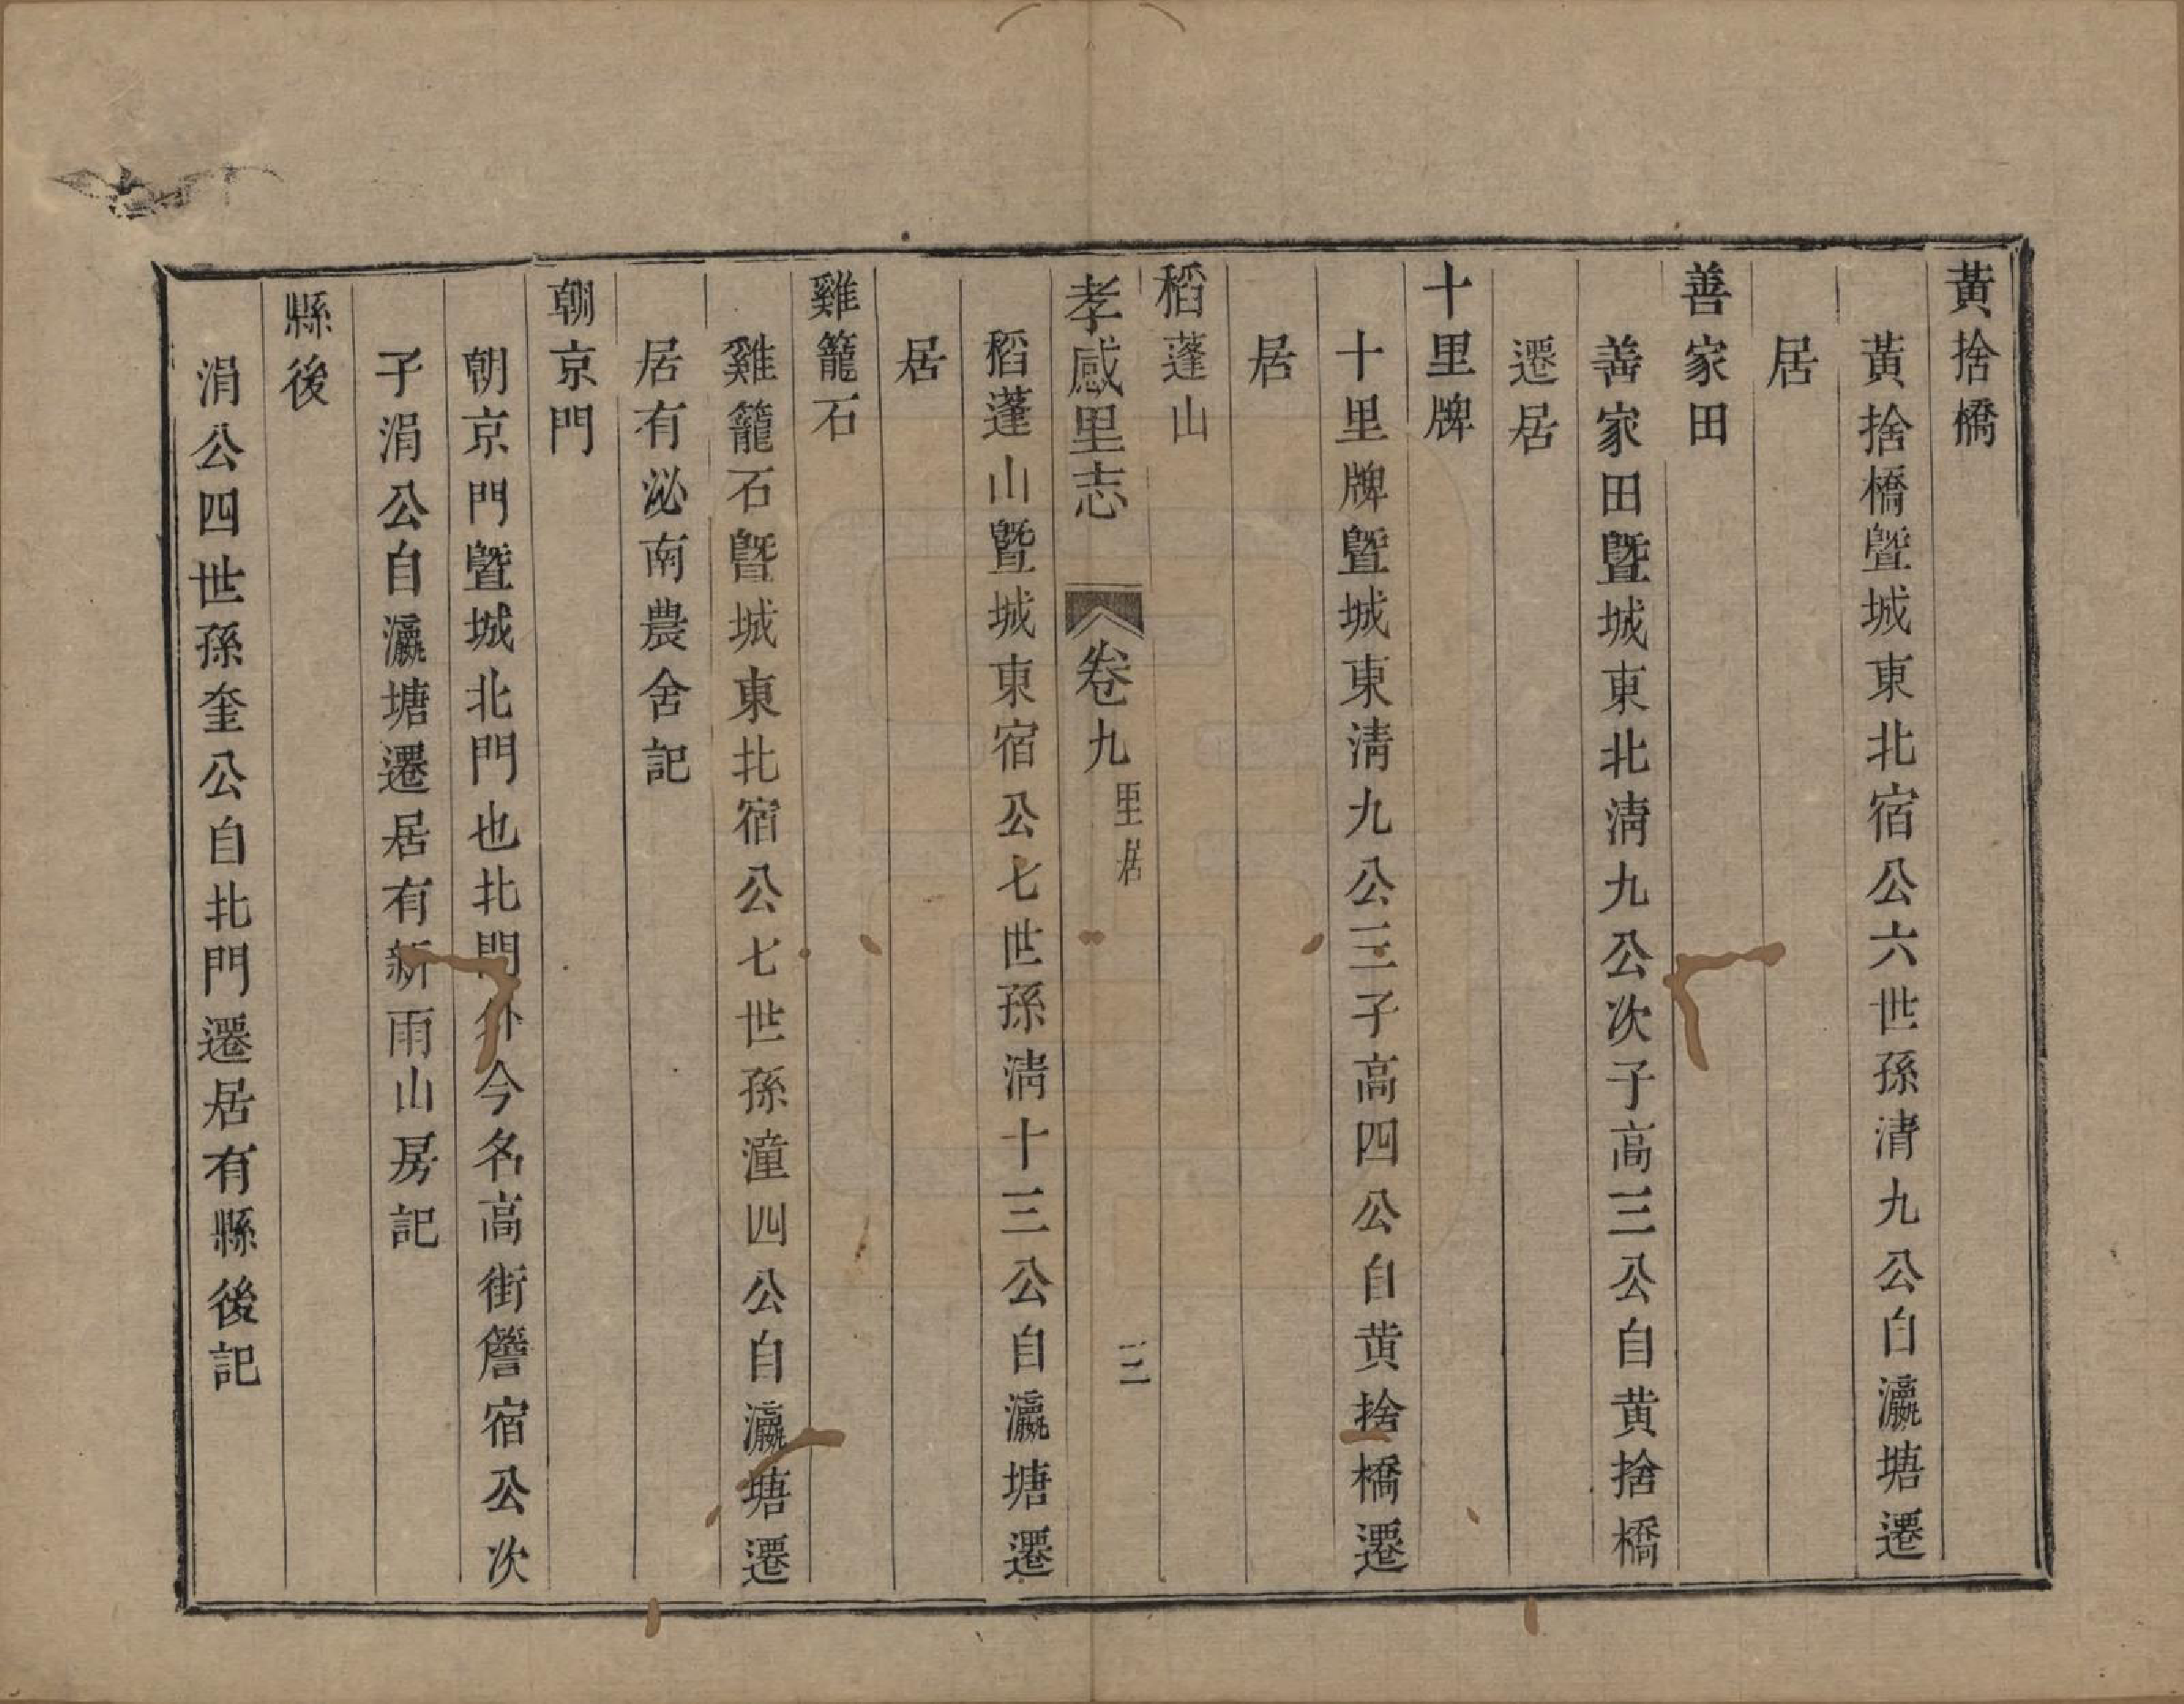 黃捨橋
黃捨橋曁城東北宿公六世孫清九公自瀛塘遷
居
善家田
善家田曁城東北淸九公次子高三公自黄捨橋
遷居
十里牌
十里牌曁城東淸九公三子高四公自黄捨橋遷
居
稻蓬山
孝感里志 卷九 里居 三
稻蓬山曁城東宿公七世孫淸十三公自瀛塘遷
居
雞籠石
雞籠石曁城東北宿公七世孫潼四公自瀛塘遷
居有泌南農舍記
朝京門
朝京門曁城北門也北門外今名高街簷宿公次
子涓公自瀛塘遷居有新雨山房記
縣後
涓公四世孫奎公自北門遷居有縣後記